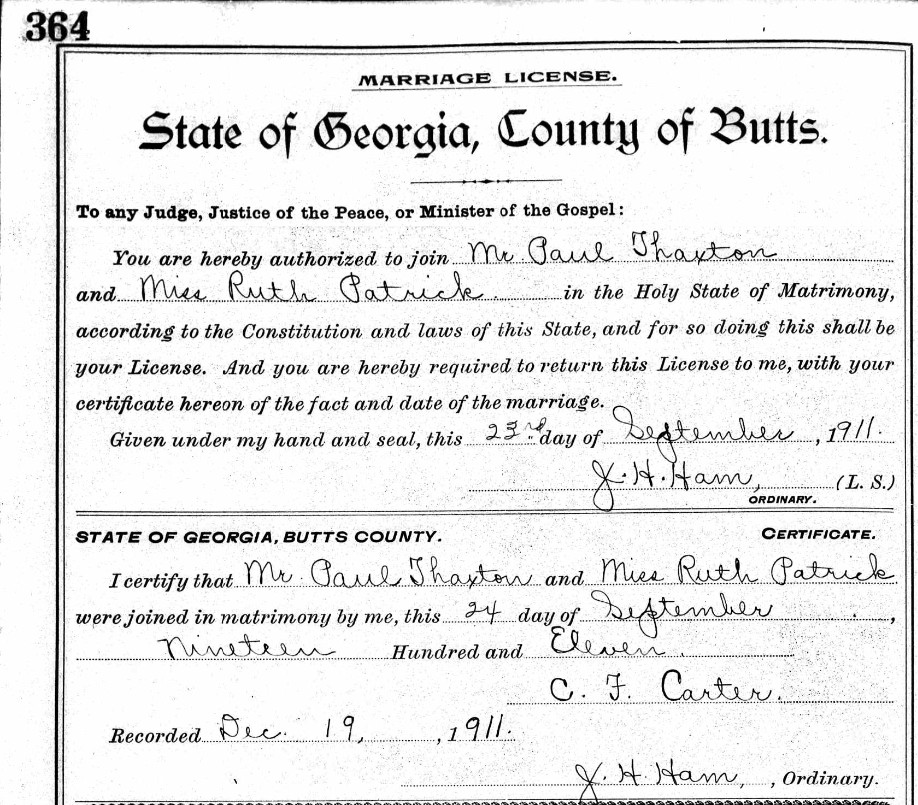 364
MARRIAGE LICENSE.
State of Georgia, County of Butts.
To any Judge, Justice of the Peace, or Minister of the Gospel:
You are hereby authorized to join Mr Paul Thaxton
and Miss Ruth Patrick in the Holy State of Matrimony,
according to the Constitution and laws of this State, and for so doing this shall be
your License. And you are hereby required to return this License to me, with your
certificate hereon of the fact and date of the marriage.
Given under my hand and seal, this 23rd day of September, 1911.
J. H. Ham, (L. S.)
ORDINARY.
STATE OF GEORGIA, BUTTS COUNTY. CERTIFICATE.
I certify that Mr. Paul Thaxton and Miss Ruth Patrick
were joined in matrimony by me, this 24 day of September,
Nineteen Hundred and Eleven.
C. F. Carter.
Recorded Dec. 19, 1911.
J. H. Ham, Ordinary.